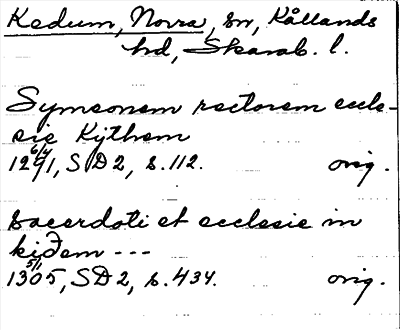 Kedum, Norra, sn, Kållands
hd, Skarab. l.
Symeonem rectorem eccle-
sie Kythem
6/4
1291, SD 2, s. 112. orig.
sacerdoti et ecclesie in
kiðem ---
5/1
1305, SD 2, s. 434. orig.